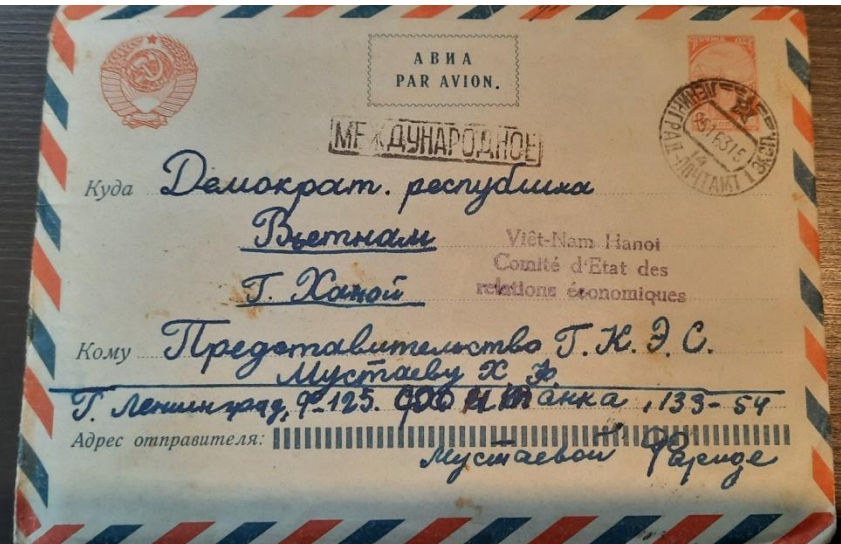 АВИА
PAR AVION.
МЕЖДУНАРОДНОЕ
Куда Демократ. республика
Вьетнам
Viêt-Nam Hanoi
Comité d'Etat des
relations économiques
Г. Ханой
Кому Представительство Г. К. Э. С.
Мустаеву Х. Ф.
Г. Ленинград, Ф-125. Фонтанка, 133-54
Адрес отправителя:
Мустаевой Фариде